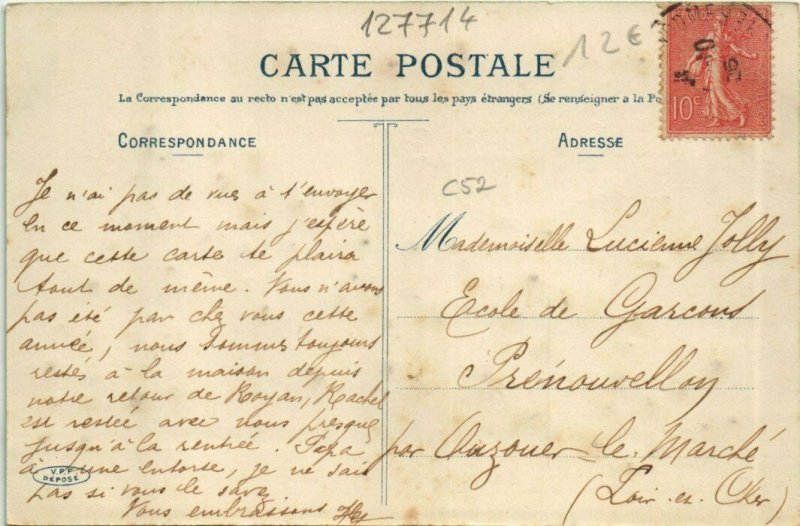 127714
12€
CARTE POSTALE
La Correspondance au recto n'est pas acceptée par tous les pays étrangers (Se renseigner a la Po
CORRESPONDANCE
ADRESSE
10c
POSTES
C52
Je n'ai pas de vues à t'envoyer
en ce moment mais j'espère
que cette carte te plaira
tout de même. Vous n'avons
pas été par chez vous cette
année, nous sommes toujours
restés à la maison depuis
notre retour de Royan, Rachel
est restée avec nous presque
jusqu'à la rentrée. Papa
a une entorse, je ne sais
pas si vous le savez
Vous embrassons
V.P.F
DEPOSÉ
Mademoiselle Lucienne Jolly
Ecole de Garcons
Prénouvellon
par Ouzouer-le-Marché
(Loir-et-Cher)